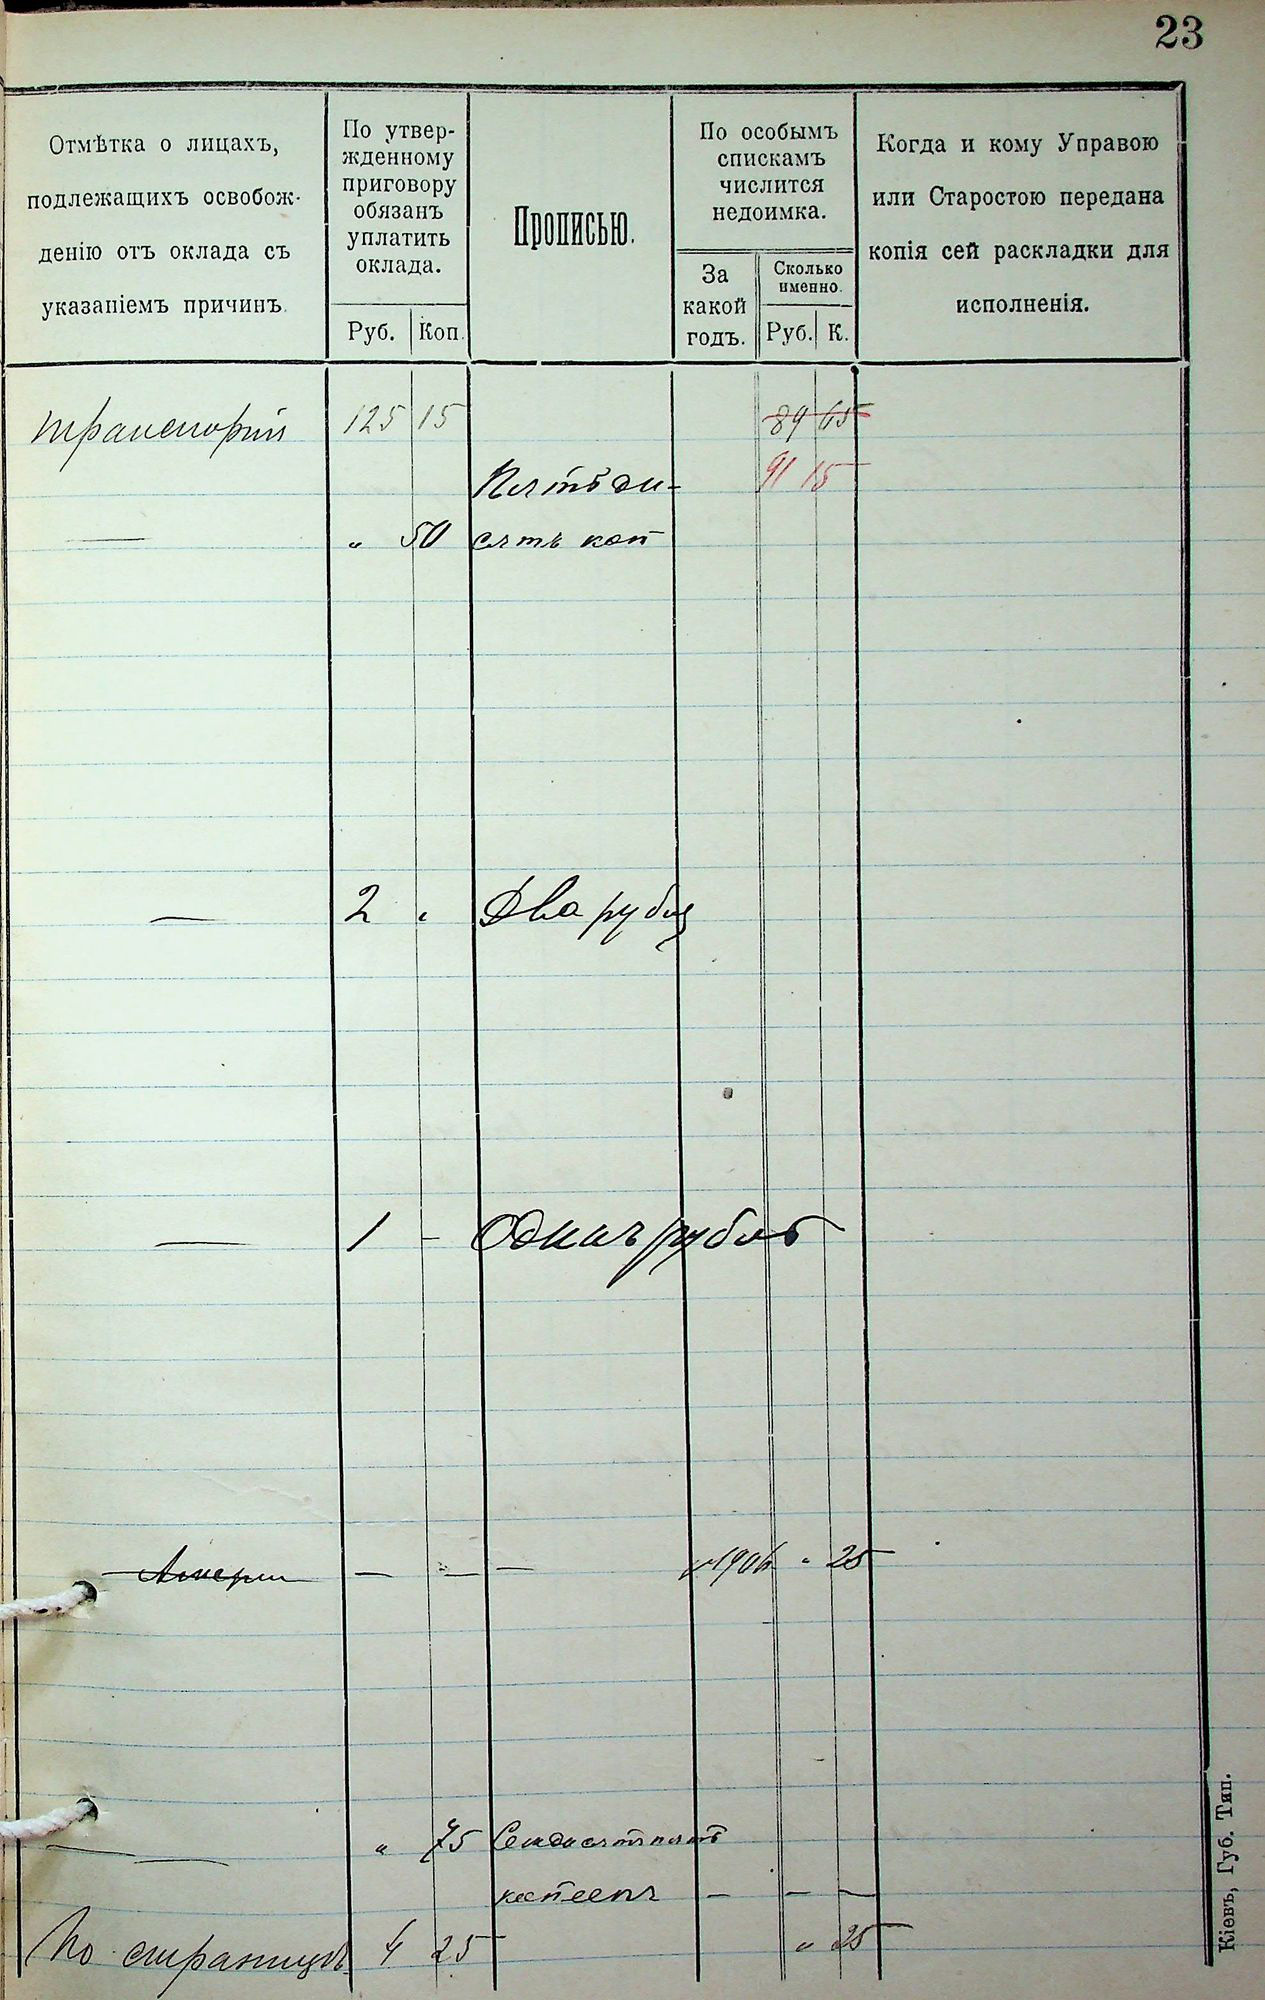 23
Отмѣтка о лицахъ,
подлежащихъ освобож-
денію отъ оклада съ
указаніемъ причинъ.
По утвер-
жденному
приговору
обязанъ
уплатить
оклада.
Руб. Коп.
Прописью.
По особымъ
спискамъ
числится
недоимка.
За
какой
годъ.
Сколько
именно.
Руб. К.
Когда и кому Управою
или Старостою передана
копія сей раскладки для
исполненія.
транспортъ 125 15 89 65
Пятьде- 91 15
— " 50 сятъ коп
— 2 " Два рубля
— 1 – Одинъ рубль
— — — 1906 " 25
— " 75 Семдесятъ пять
копеекъ — — —
По страницѣ 4 25 " 25
Кіевъ, Губ. Тип.